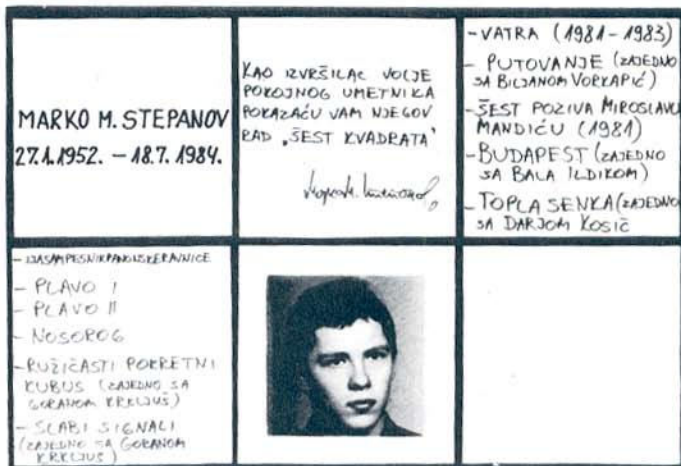 MARKO M. STEPANOV
27.1.1952. – 18.7.1984.
KAO IZVRŠILAC VOLJE
POKOJNOG UMETNIKA
POKAZAĆU VAM NJEGOV
RAD „ŠEST KVADRATA“
– VATRA (1981–1983)
– PUTOVANJE (ZAJEDNO
SA BILJANOM VORKAPIĆ)
– ŠEST POZIVA MIROSLAVU
MANDIĆU (1981)
– BUDAPEST (ZAJEDNO
SA BALA ILDIKOM)
– TOPLA SENKA (ZAJEDNO
SA DARJOM KOSIČ
– JASAMPESNIKPANONSKERAVNICE
– PLAVO I
– PLAVO II
– NOSOROG
– RUŽIČASTI POKRETNI
KUBUS (ZAJEDNO SA
GORANOM KRKLJUŠ)
– SLABI SIGNALI
(ZAJEDNO SA GORANOM
KRKLJUŠ)